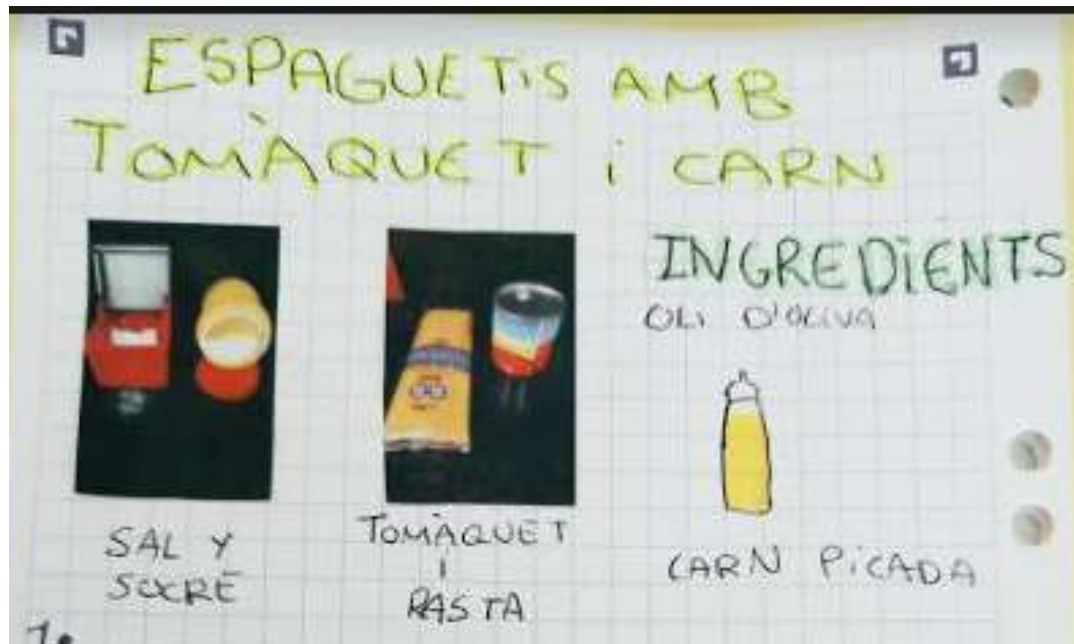 ESPAGUETIS AMB
TOMÀQUET i CARN
INGREDIENTS
OLI D'OLIVA
SAL Y
SUCRE
TOMÀQUET
I
PASTA
CARN PICADA
1.